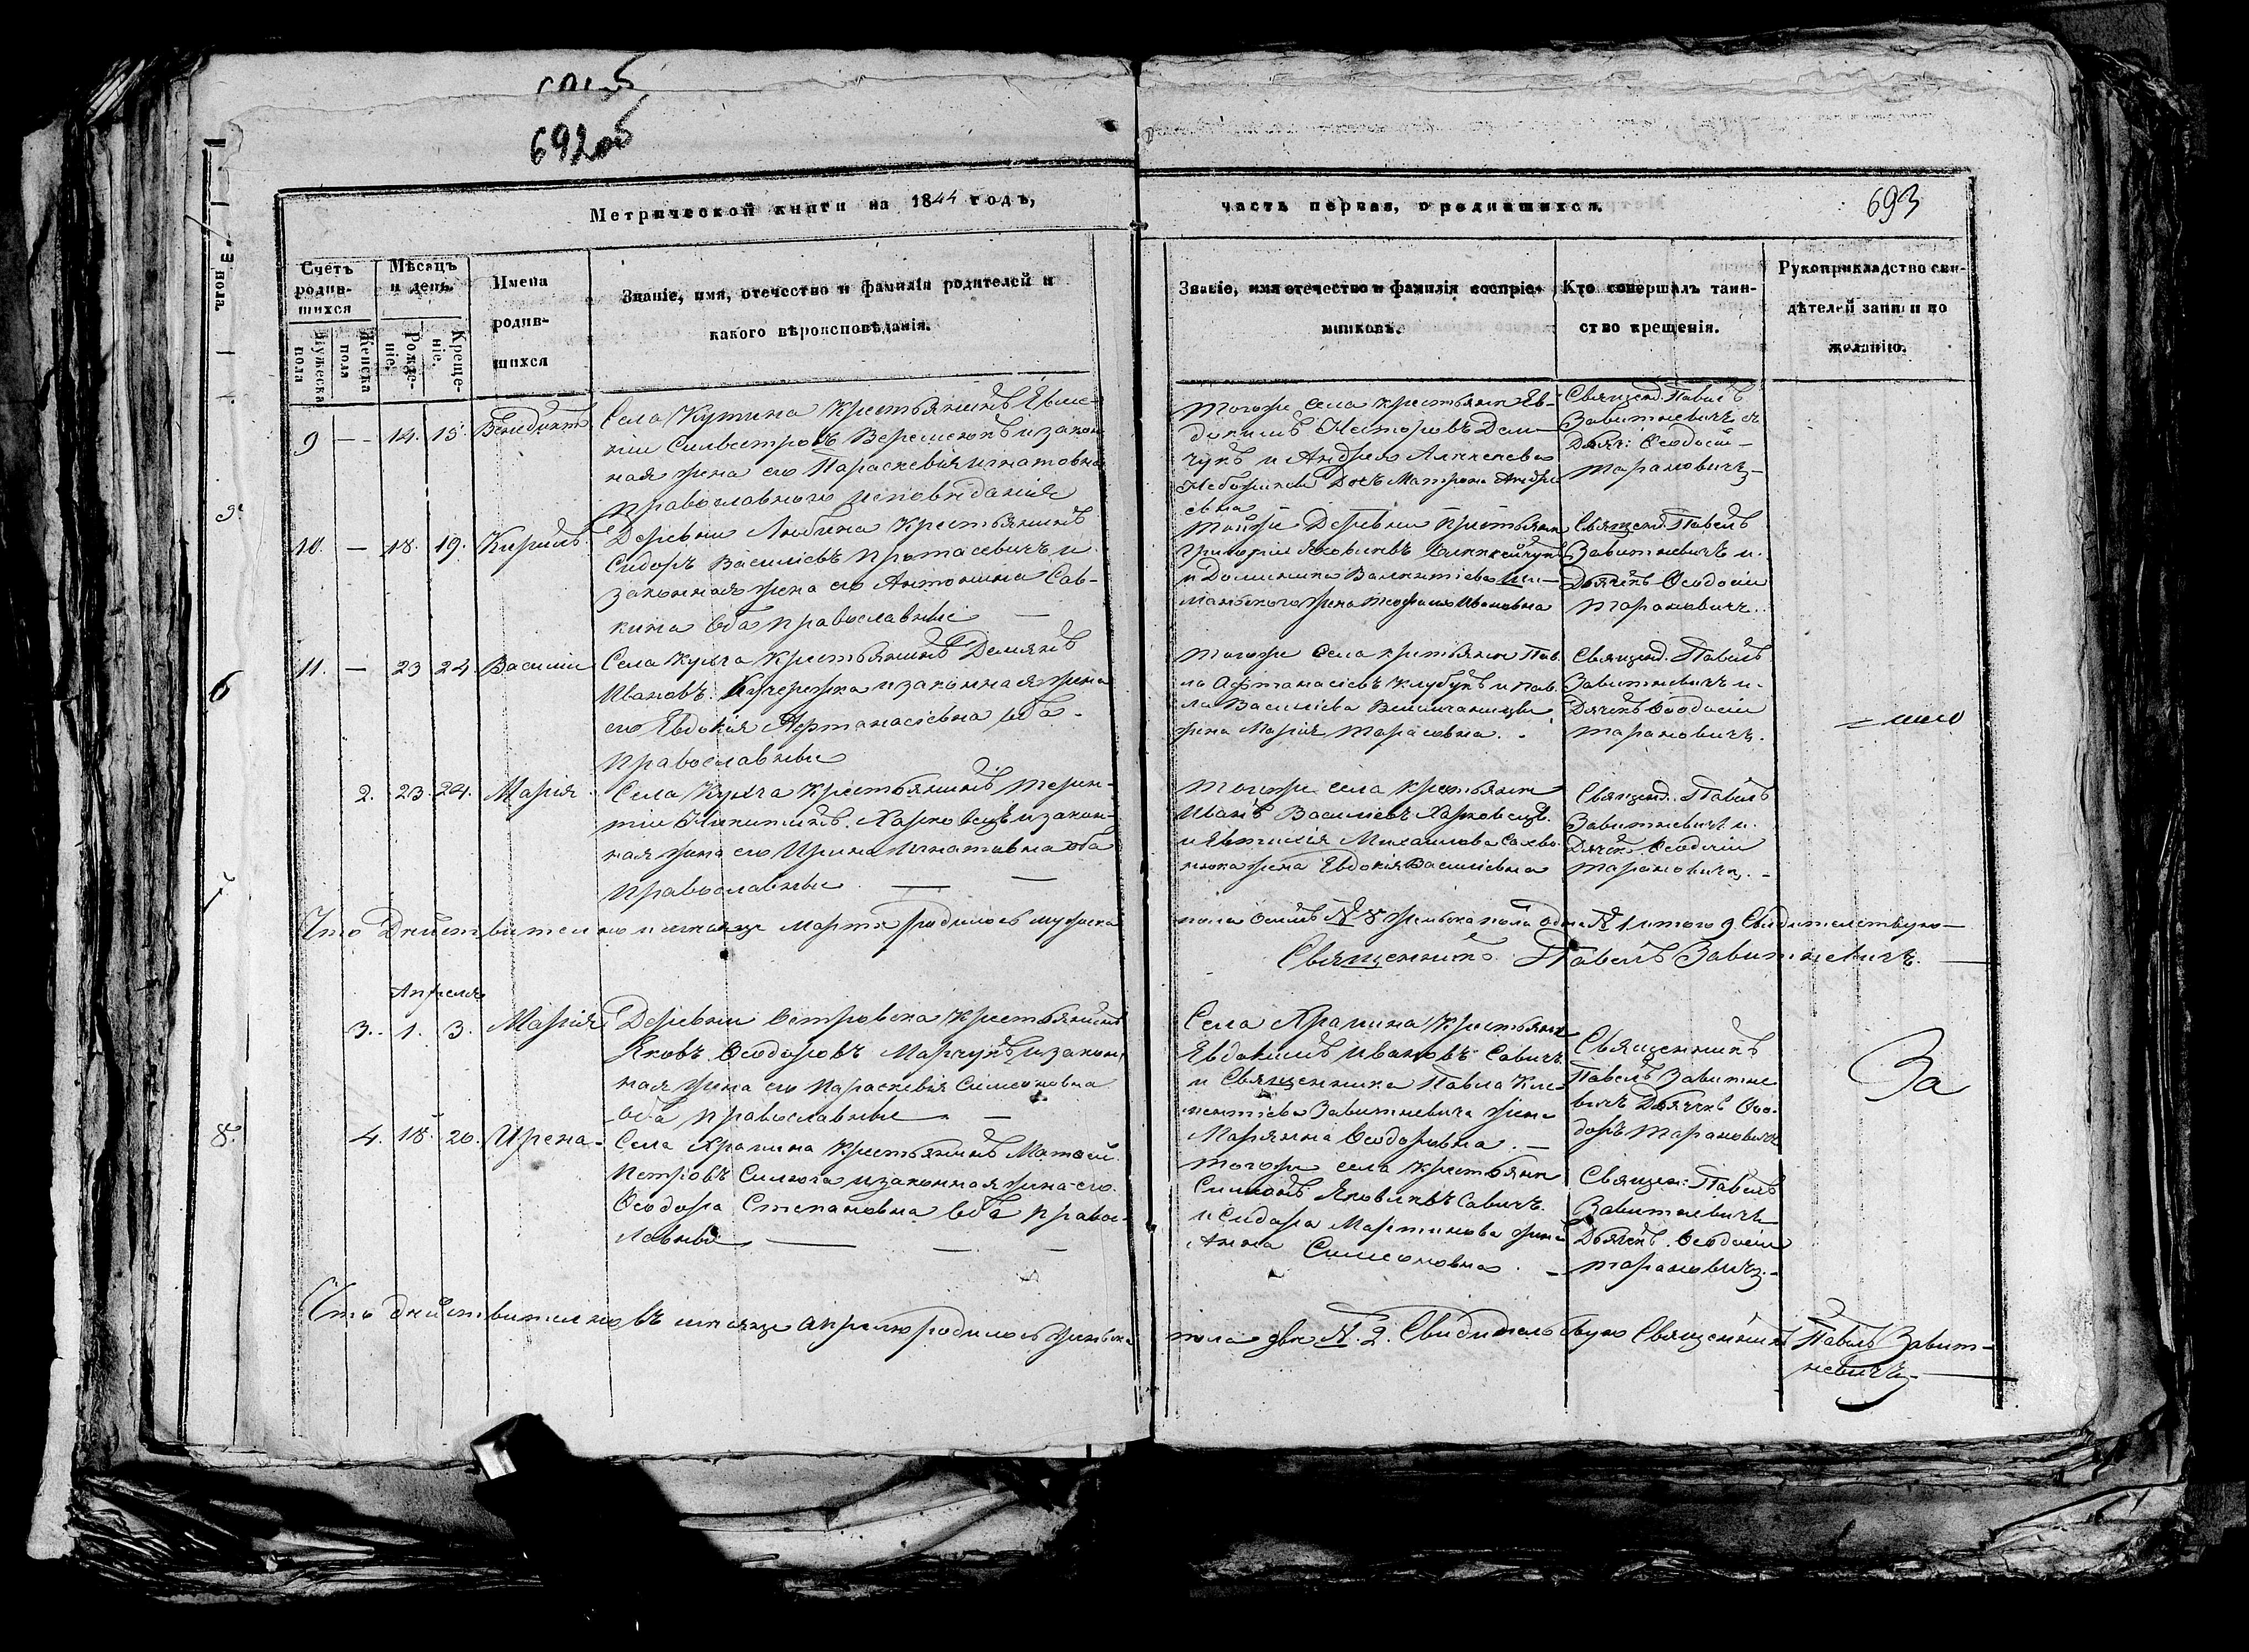 692об
693
Метрической книги на 1844 годъ,
часть первая, о родившихся.
Счетъ родив-
шихся
Мѣсяцъ
и день.
Имена
родив-
шихся
Званіе, имя, отечество и фамилія родителей и
какого вѣроисповѣданія.
Званіе, имя отечество и фамилія воспріе-
мниковъ.
Кто совершалъ таин-
ство крещенія.
Рукоприкладство сви-
дѣтелей записи по
желанію.
Мужеска
пола
Женска
пола
Рожде-
ніе.
Креще-
ніе.
9 — 14. 15. Бенедиктъ
Села Кутина Крестьянинъ Евме-
ній Сильвестровъ Веремеюкъ и закон
ная жена его Параскевія Игнатовна
Православнаго исповѣданія
Тогожъ села крестьяне Ев-
докимъ Несторовъ Дем-
чукъ и Андрея Алексеева
дочь Матрона Андре
евна
Священ. Павелъ
Завитневичъ и
Дьяч: Ѳеодосій
Тарановичъ
10. — 18. 19. Кирилъ.
Деревни Любина Крестьянинъ
Сидоръ Василіевъ Протасевичъ и
законная жена его Антонина Сав-
кина оба православные
Тойже Деревни Крестьяне
Григорій Яковлевъ
и Доминика Валентіева
жена Теофила Ивановна
Священ. Павелъ
Завитневичъ и
Дьячекъ Ѳеодосій
Тарановичъ.
11. — 23 24. Василій
Села Кухча Крестьянинъ Демянъ
Ивановъ Кучерушка и законная жена
его Евдокія Афтанасіевна оба
православные
Тогоже Села крестьяне Пав
ло Афтанасіевъ Клубукъ и Пав
ла Василіева
жена Марія Тарасовна.
Священ. Павелъ
Завитневичъ и
Дячекъ Ѳеодосій
Тарановичъ.
2. 23. 24. Марія
Села Кухча Крестьянинъ Терен-
тій Никитинъ Харковецъ и закон-
ная жена его Ирина Игнатовна оба
православные
Тогоже села крестьяне
Иванъ Василіевъ Харковецъ
и Евтихія Михаилова
жена Евдокія Василіевна
Священ. Павелъ
Завитневичъ и
Дячек Ѳеодосій
Тарановичъ.
Что Действително месяце Марте родилось мужеска
пола осемъ № 8 женьска пола одна № 1 итого 9 Свидетелствую
Священникъ Павелъ Завитневичъ.
Апреля
3. 1. 3. Марія
Деревни Островска Крестьянинъ
Яковъ Ѳеодоровъ Марчукъ и закон
ная жена его Параскевія Симеоновна
оба православные
Села Храпина Крестьяне
Евдокимъ Ивановъ Савичъ
и Священника Павла Кле-
ментіева Завитневича жена
Маріянна Ѳеодоровна.
Священникъ
Павелъ Завитне
вичъ Дьячекъ Ѳео-
доръ Тарановичъ
За
4. 18. 20. Ирена
Села Храпина Крестьянинъ Матѳей
Петровъ Силюга и законная жена его
Ѳеодора Степановна оба право-
славные
Тогоже села крестьяне
Симонъ Яковлевъ Савичъ
и Сидора Мартинова жена
Анна Симеоновна.
Священ: Павелъ
Завитневичъ
Дьячекъ Ѳеодосій
Тарановичъ.
Что действително въ месяце апрелю родилось женьска
пола две № 2. Свидетельствую Священникъ Павелъ Завит-
невичъ
6
7
8.